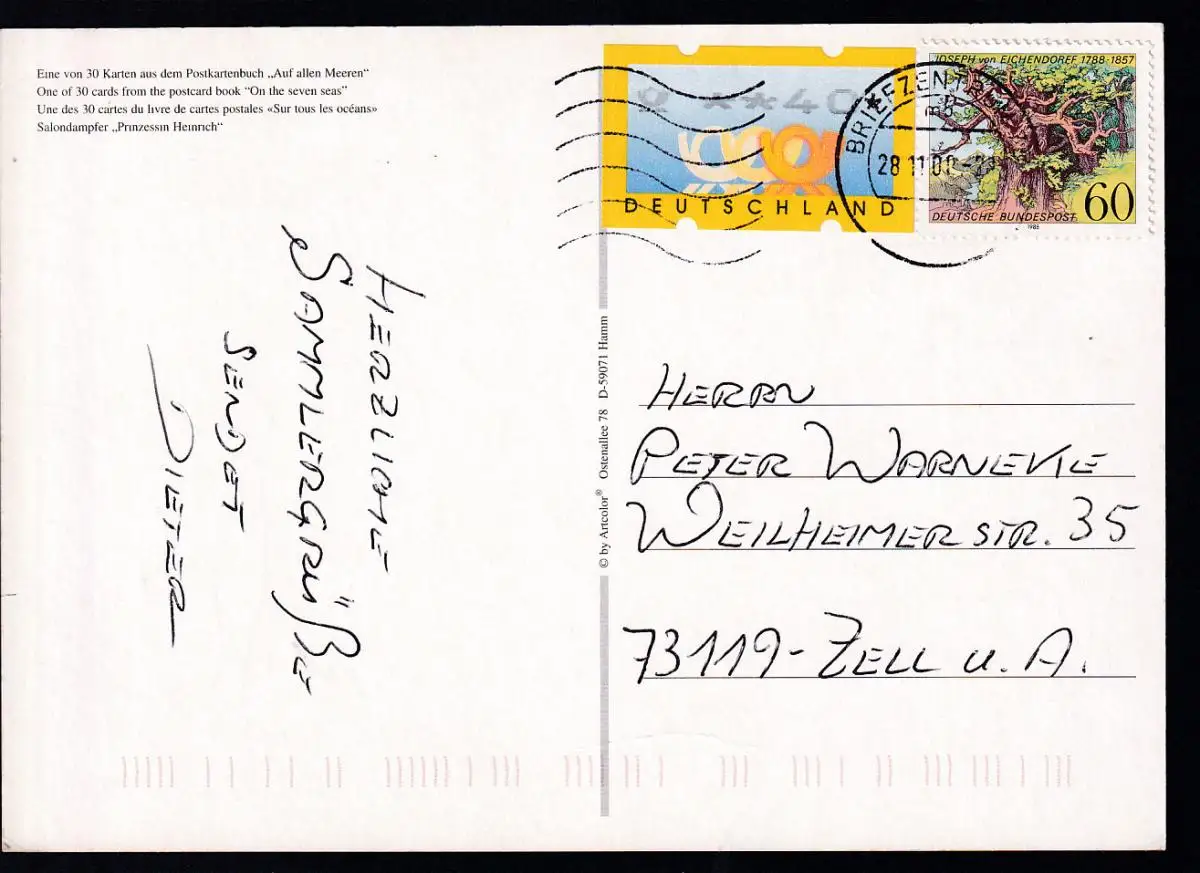 Eine von 30 Karten aus dem Postkartenbuch „Auf allen Meeren“
One of 30 cards from the postcard book “On the seven seas”
Une des 30 cartes du livre de cartes postales «Sur tous les océans»
Salondampfer „Prinzessin Heinrich“
HERZLICHE
SAMMLERGRÜßE
SENDET
DIETER
© by Artcolor® Ostenallee 78 D-59071 Hamm
**40
DEUTSCHLAND
BRIEFZENTR
28.11.00
JOSEPH von EICHENDORFF 1788-1857
DEUTSCHE BUNDESPOST 60
1985
HERRN
PETER WARNEKE
WEILHEIMER STR. 35
73119-ZELL U. A.